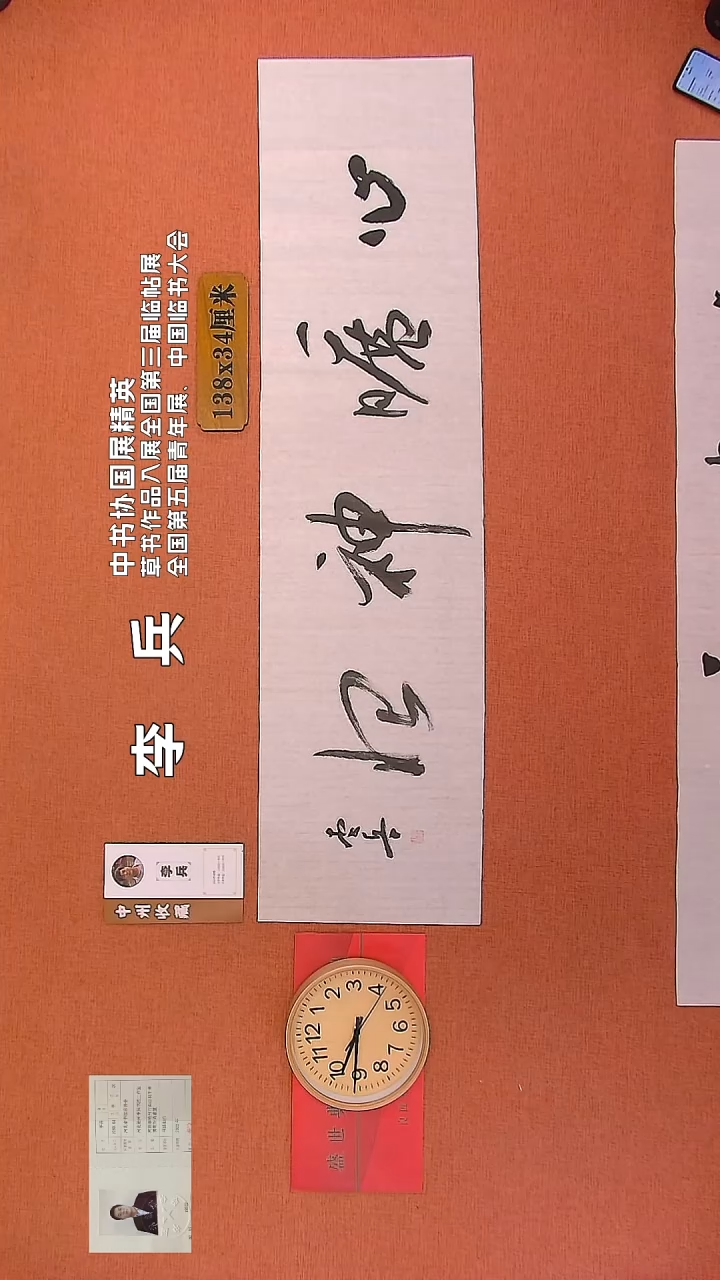 中书协国展精英
草书作品入展全国第三届临帖展
全国第五届青年展、中国临书大会
李兵
138x34厘米
心曠神怡
李兵
李兵
中州收藏
盛世
12 1 2 3 4 5 6 7 8 9 10 11